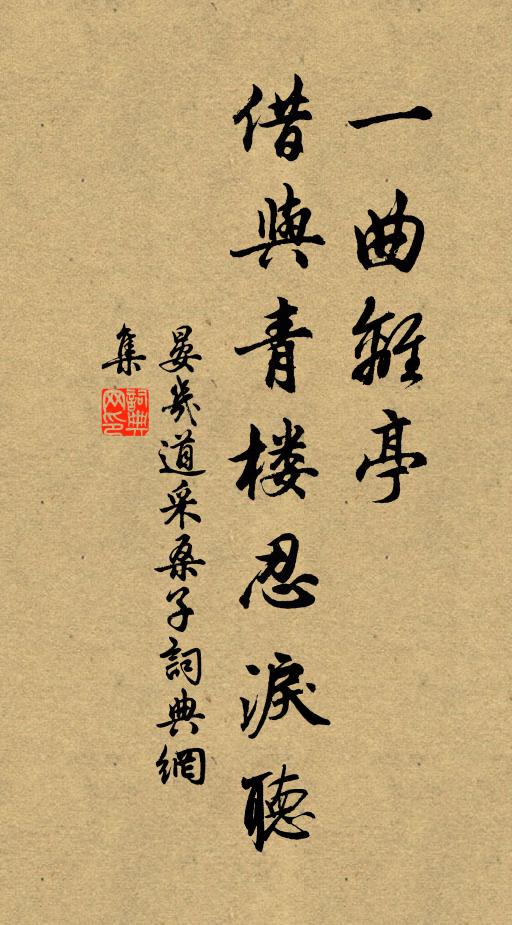 一曲離亭
借與青楼忍淚聽
晏幾道采桑子詞典網
集
詞典
网印